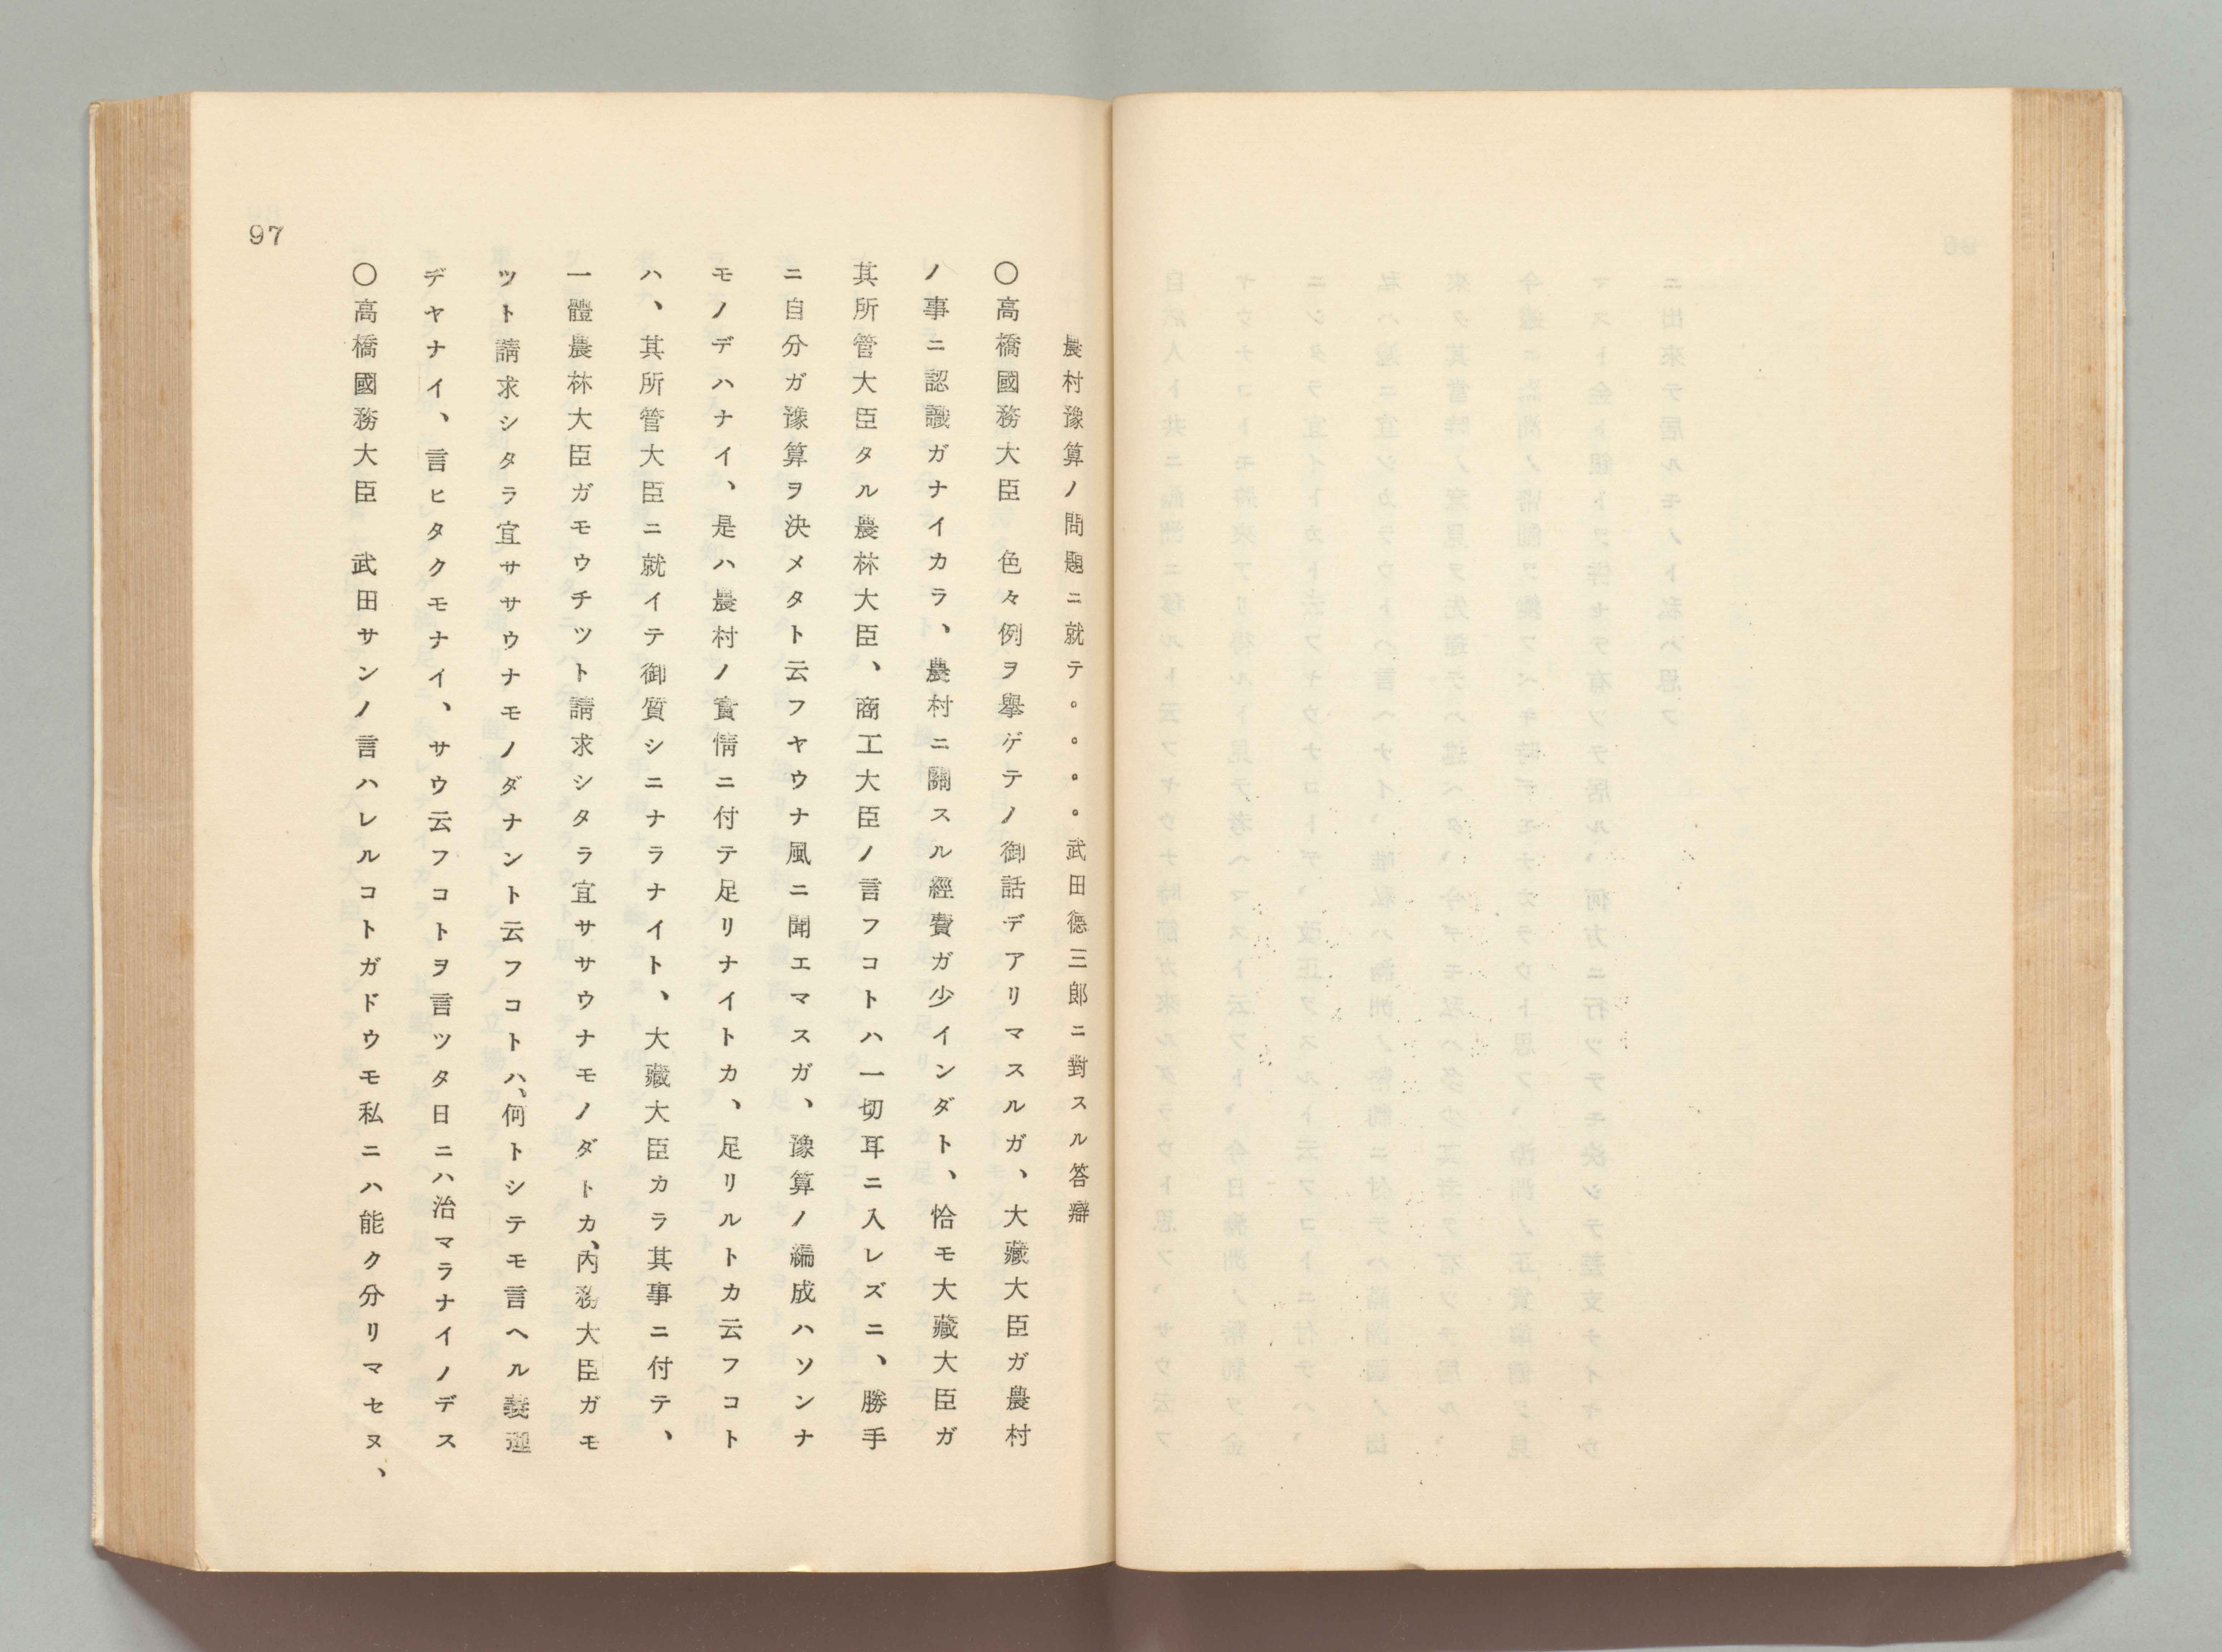 農村豫算ノ問題ニ就テ。。。。武田德三郎ニ對スル答辯
〇高橋國務大臣　色々例ヲ擧ゲテノ御話デアリマスルガ、大藏大臣ガ農村
ノ事ニ認識ガナイカラ、農村ニ關スル經費ガ少インダト、恰モ大藏大臣ガ
其所管大臣タル農林大臣、商工大臣ノ言フコトハ一切耳ニ入レズニ、勝手
ニ自分ガ豫算ヲ決メタト云フヤウナ風ニ聞エマスガ、豫算ノ編成ハソンナ
モノデハナイ、是ハ農村ノ實情ニ付テ足リナイトカ、足リルトカ云フコト
ハ、其所管大臣ニ就イテ御質シニナラナイト、大藏大臣カラ其事ニ付テ、
一體農林大臣ガモウチツト請求シタラ宜ササウナモノダトカ、内務大臣ガモ
ツト請求シタラ宜ササウナモノダナント云フコトハ、何トシテモ言ヘル義理
デヤナイ、言ヒタクモナイ、サウ云フコトヲ言ツタ日ニハ治マラナイノデス
〇高橋國務大臣　武田サンノ言ハレルコトガドウモ私ニハ能ク分リマセヌ、
97